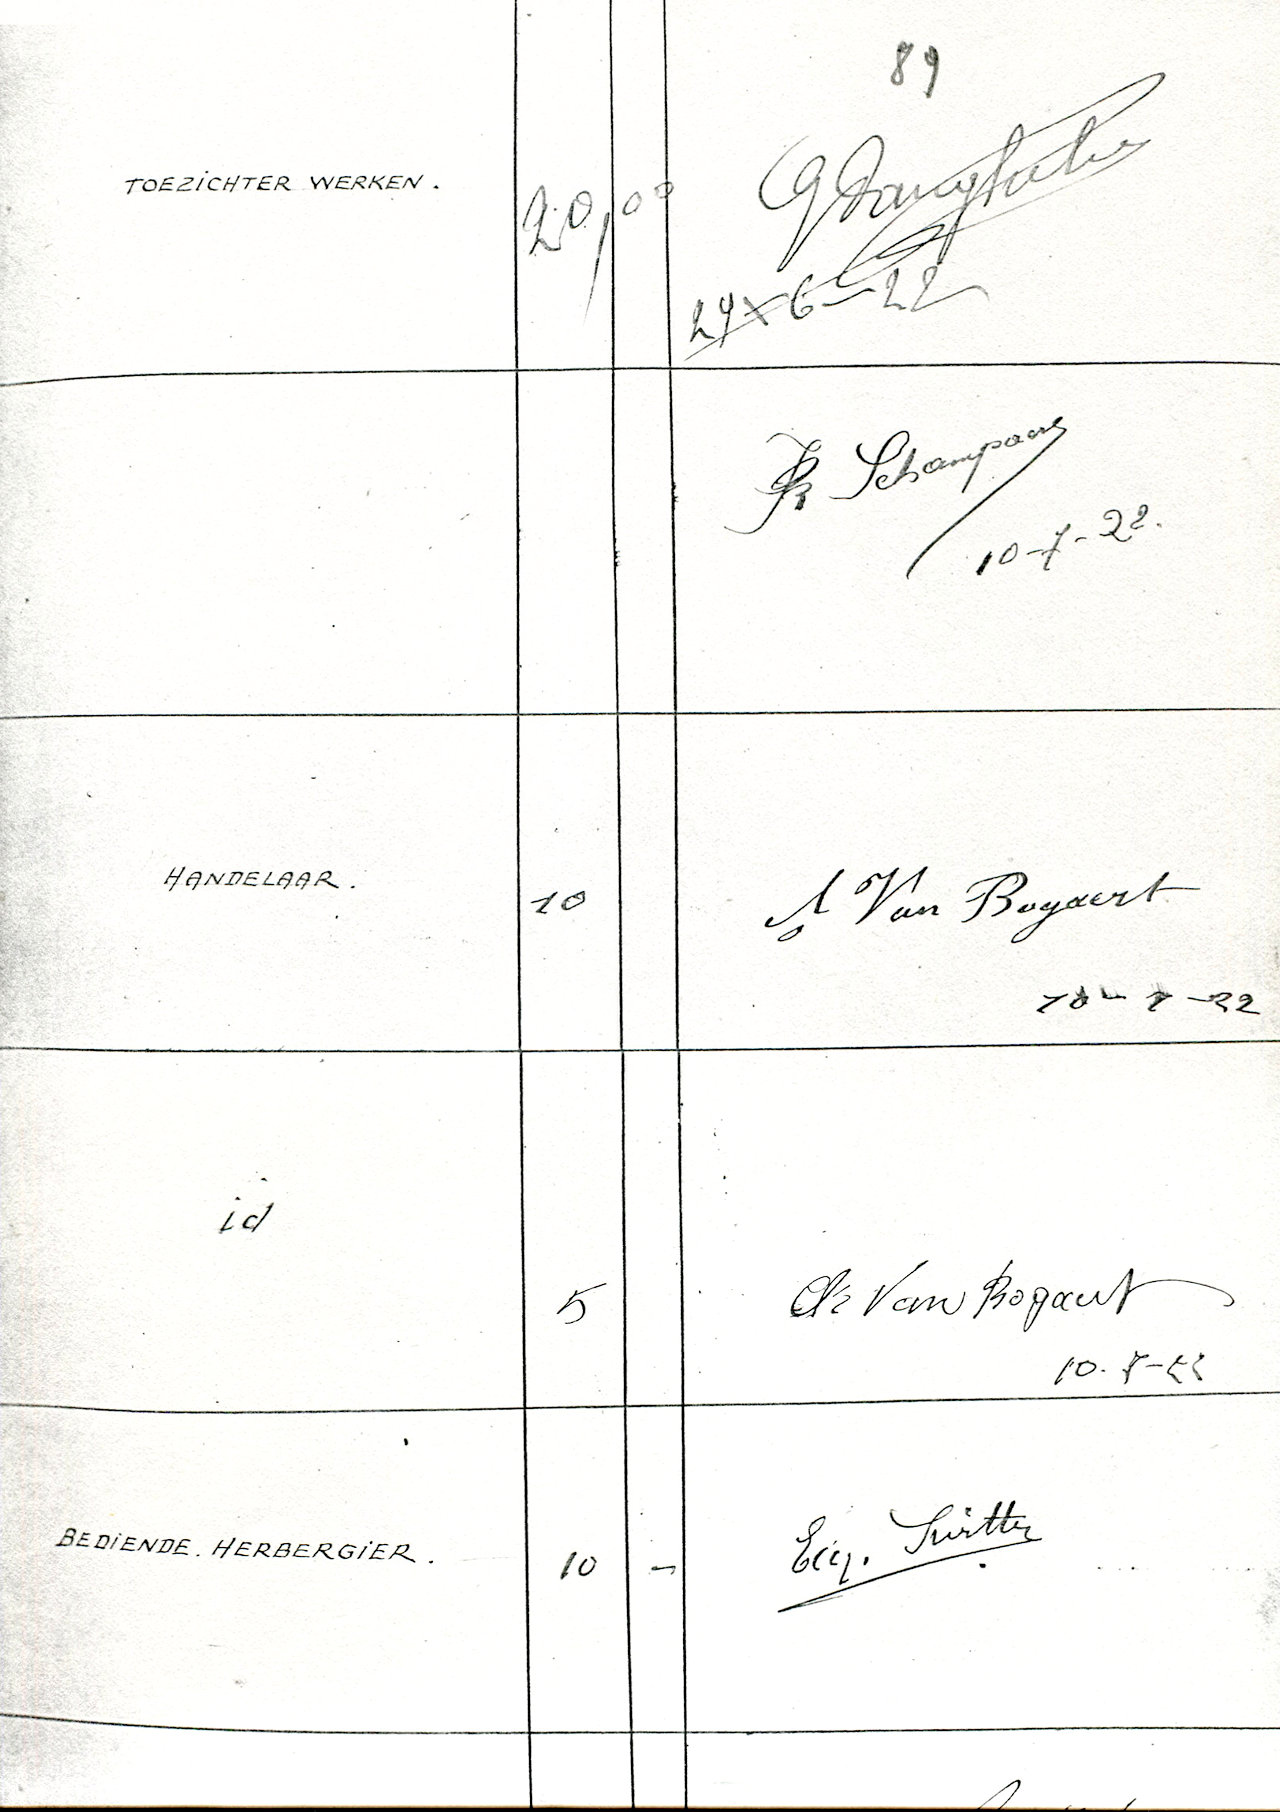 89
TOEZICHTER WERKEN.
20,00
29-6-22
Schampaers
10-7-22.
HANDELAAR.
10
Van Bogaert
10-7-22
id
5
Van Bogaert
10-7-22
BEDIENDE. HERBERGIER.
10 -